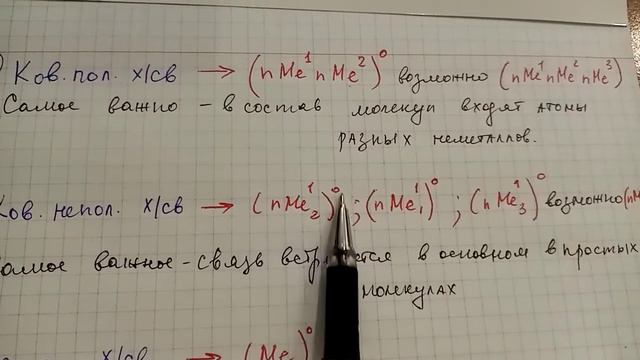 Ков. пол. х/св → (nMe¹ nMe²)⁰ возможно (nMe¹ nMe² nMe³)
Самое важно – в состав молекул входят атомы
разных неметаллов.
Ков. непол. х/св → (nMe¹₂)⁰ ; (nMe¹₁)⁰ ; (nMe¹₃)⁰ возможно (nM
самое важное – связь встр ется в основном в простых
молекулах
х/св → (Me )⁰